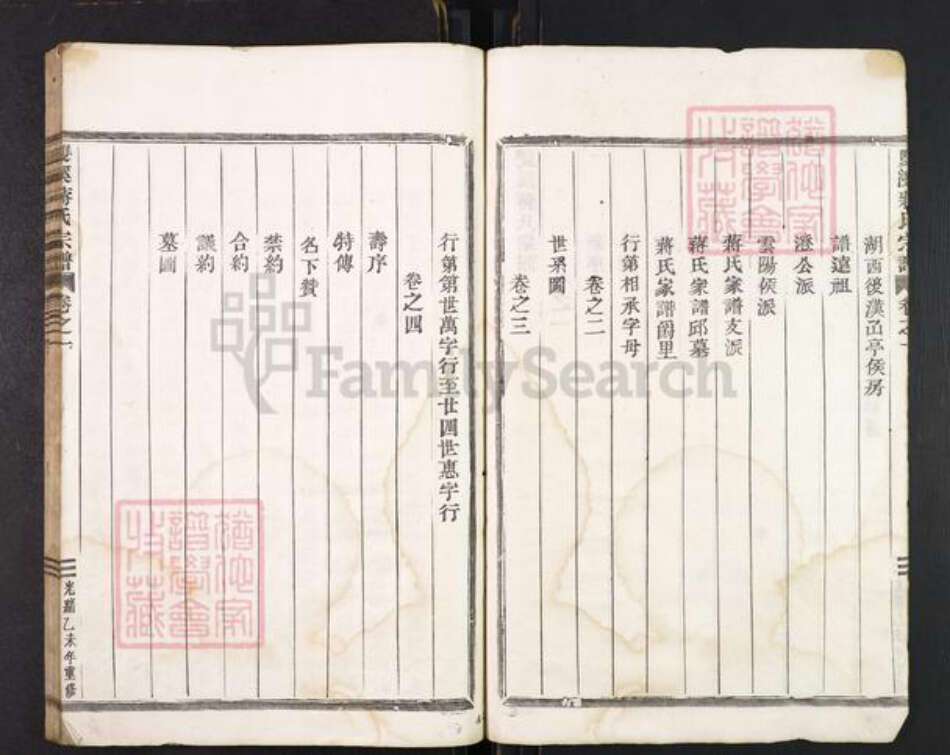 湖西後漢䓕亭侯房
譜遠祖
澄公派
雲陽侯派
蔣氏家譜支派
蔣氏家譜邱墓
蔣氏家譜爵里
行第相承字母
卷之二
世系圖
卷之三
行第第世萬字行至廿四世惠字行
卷之四
壽序
特傳
名下贊
禁約
合約
議約
墓圖
蔣氏宗譜
卷之一
光緒乙未年重修
FamilySearch
譜學會
收藏